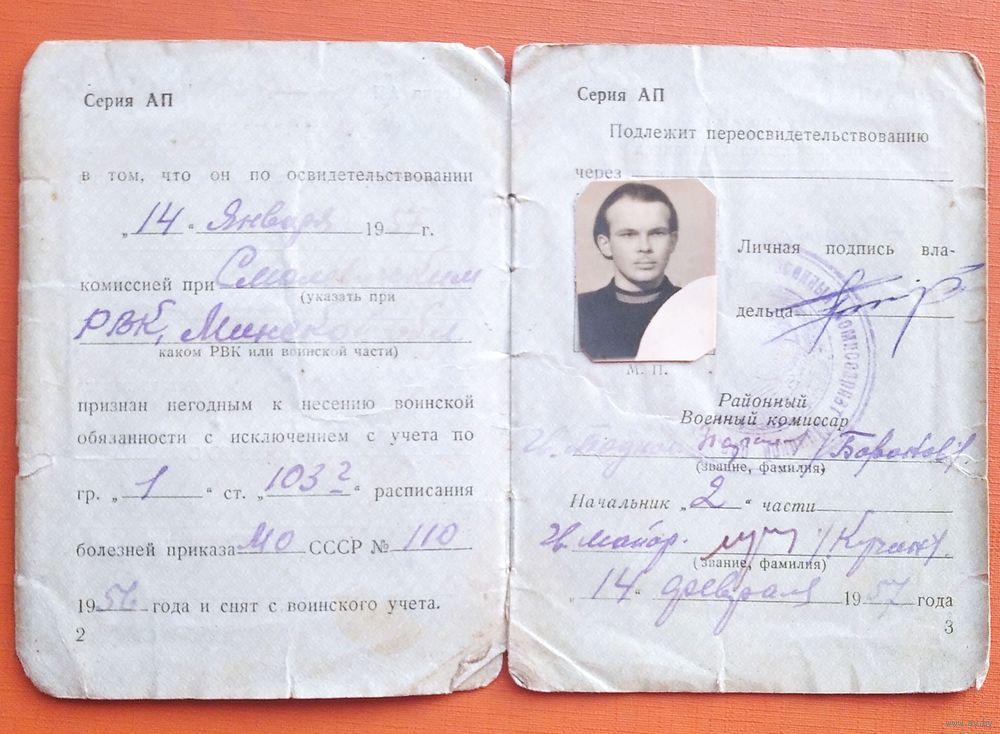 Серия АП
в том, что он по освидетельствовании
„14“ Января 1957 г.
комиссией при
(указать при
РВК,
каком РВК или воинской части)
признан негодным к несению воинской
обязанности с исключением с учета по
гр. „1“ ст. „103 2“ расписания
болезней приказа МО СССР № 110
195 года и снят с воинского учета.
2
Серия АП
Подлежит переосвидетельствованию
через
Личная подпись вла-
дельца
М. П.
Районный
Военный комиссар
(звание, фамилия)
Начальник „2“ части
Гв. майор.
(звание, фамилия)
„14“ февраля 1957 года
3
www.ay.by